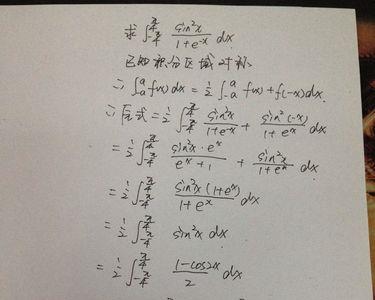 求 ∫_{-π/4}^{π/4} sin²x/(1+e^{-x}) dx.
已知积分区域对称
∴ ∫_{-a}^{a} f(x)dx = 1/2 ∫_{-a}^{a} f(x)+f(-x)dx.
∴ 原式 = 1/2 ∫_{-π/4}^{π/4} sin²x/(1+e^{-x}) + sin²(-x)/(1+e^{x}) dx.
= 1/2 ∫_{-π/4}^{π/4} sin²x·e^x/(e^x+1) + sin²x/(1+e^x) dx.
= 1/2 ∫_{-π/4}^{π/4} sin²x(1+e^x)/(1+e^x) dx
= 1/2 ∫_{-π/4}^{π/4} sin²x dx
= 1/2 ∫_{-π/4}^{π/4} (1-cos2x)/2 dx